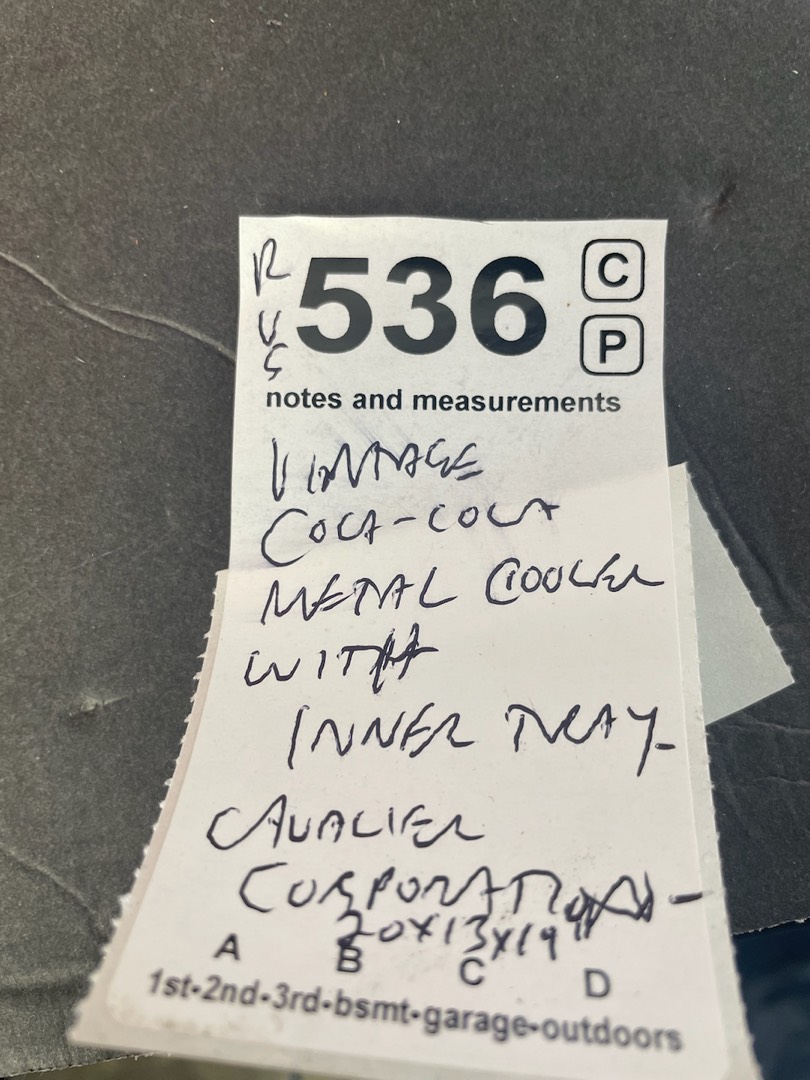 RUS
536
C
P
notes and measurements
VINTAGE
COCA-COLA
METAL COOLER
WITH
INNER TRAY-
CAVALIER
CORPORATION-
20X13X19"
A B C D
1st•2nd•3rd•bsmt•garage•outdoors